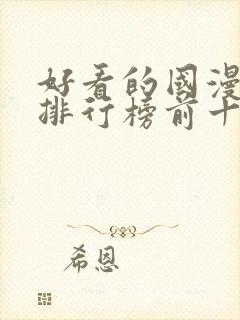 好看的國漫
排行榜前十
希恩